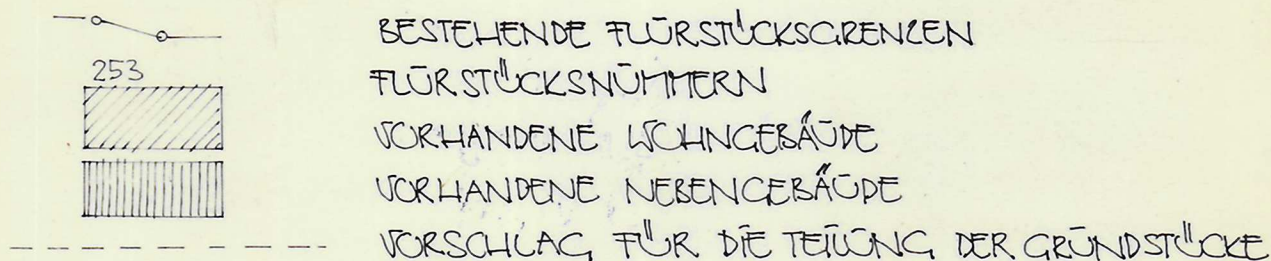 BESTEHENDE FLURSTÜCKSGRENZEN
253 FLURSTÜCKSNUMMERN
VORHANDENE WOHNGEBÄUDE
VORHANDENE NEBENGEBÄUDE
VORSCHLAG FÜR DIE TEILUNG DER GRUNDSTÜCKE